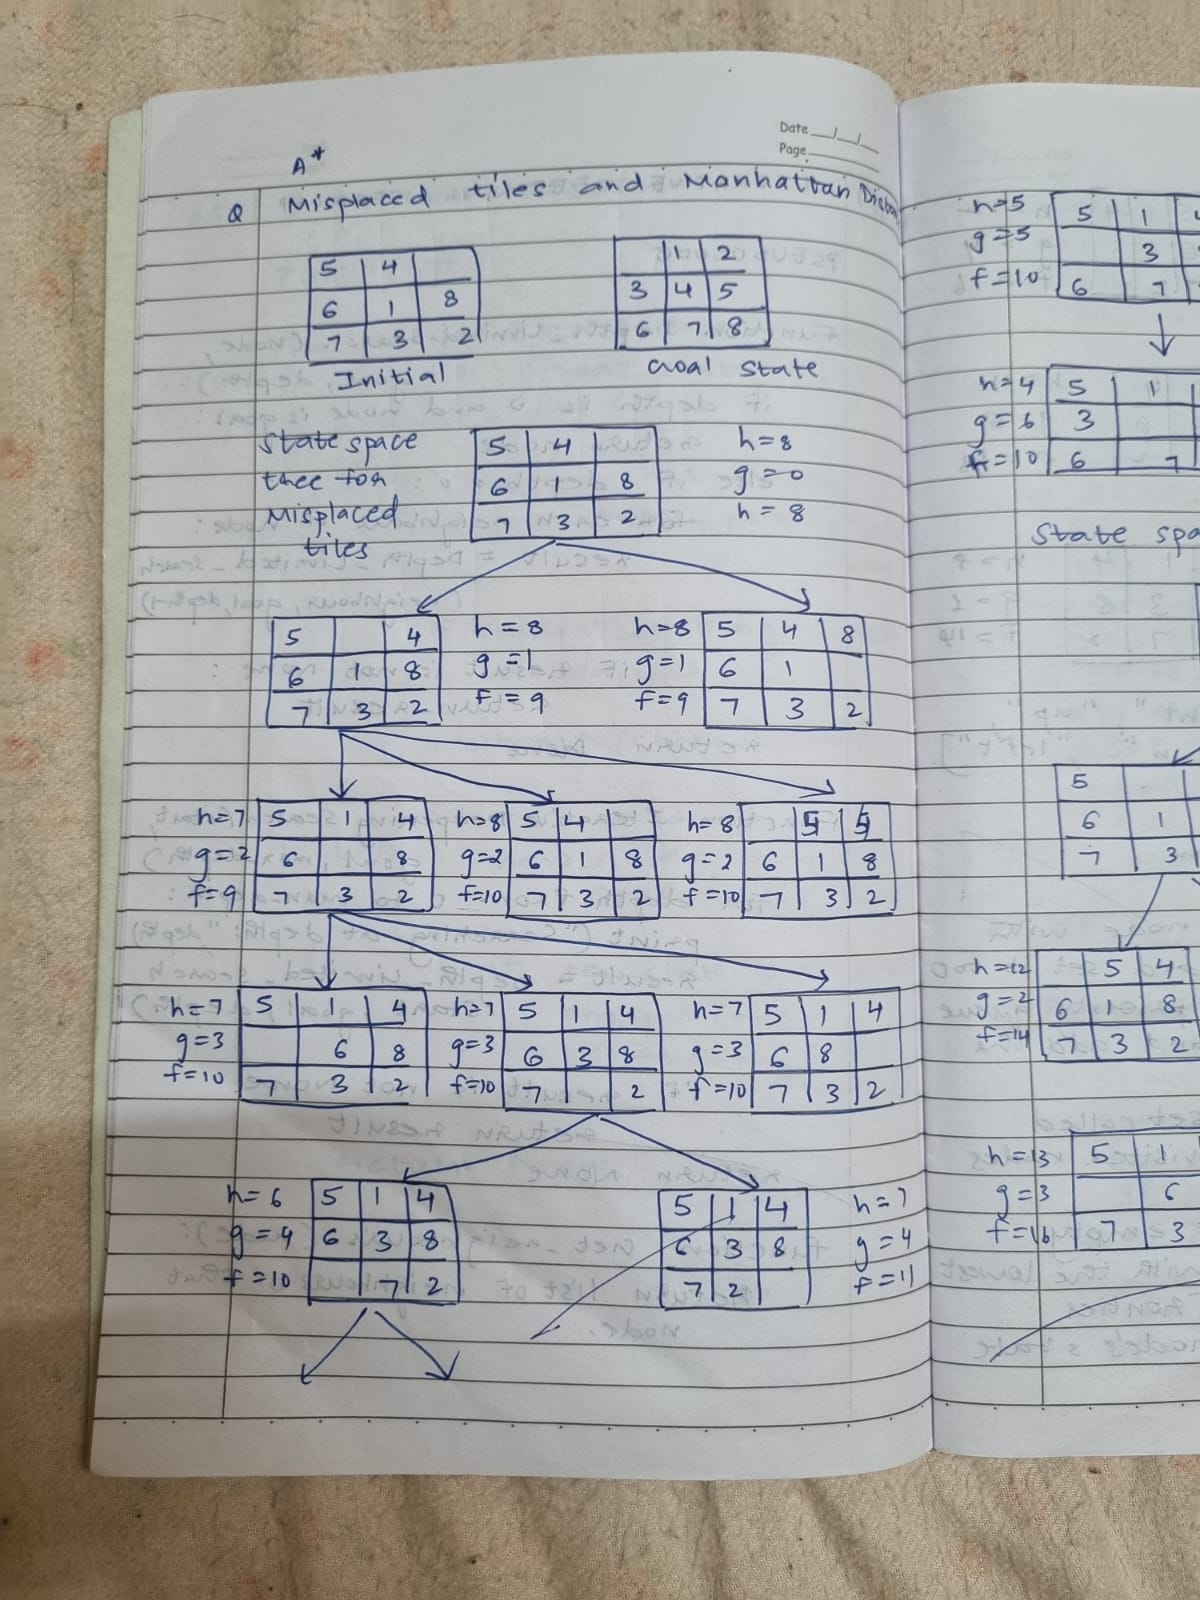 Date __/__/__
Page
A*
Q Misplaced tiles and Manhattan
5 4
6 1 8
7 3 2
Initial
1 2
3 4 5
6 7 8
Goal State
State space
tree for
Misplaced
tiles
5 4
6 1 8
7 3 2
h=8
g=0
h=8
5 4
6 1 8
7 3 2
h=8
g=1
f=9
h=8
g=1
f=9
5 4 8
6 1
7 3 2
h=7
g=2
f=9
5 1 4
6 8
7 3 2
h=8
g=2
f=10
5 4
6 1 8
7 3 2
h=8
g=2
f=10
6 1 8
7 3 2
h=7
g=3
f=10
5 1 4
6 8
7 3 2
h=7
g=3
f=10
5 1 4
6 3 8
7 2
h=7
g=3
f=10
5 1 4
6 8
7 3 2
h=6
g=4
f=10
5 1 4
6 3 8
7 2
5 1 4
6 3 8
7 2
h=7
g=4
f=11
h=5
g=5
f=10
5 1
3
6 7
h=4
g=6
f=10
5 1
3
6 7
State
5
6 1
7 3
h=12
g=2
f=14
5 4
6 1 8
7 3 2
h=13
g=3
f=16
5 1
6
7 3